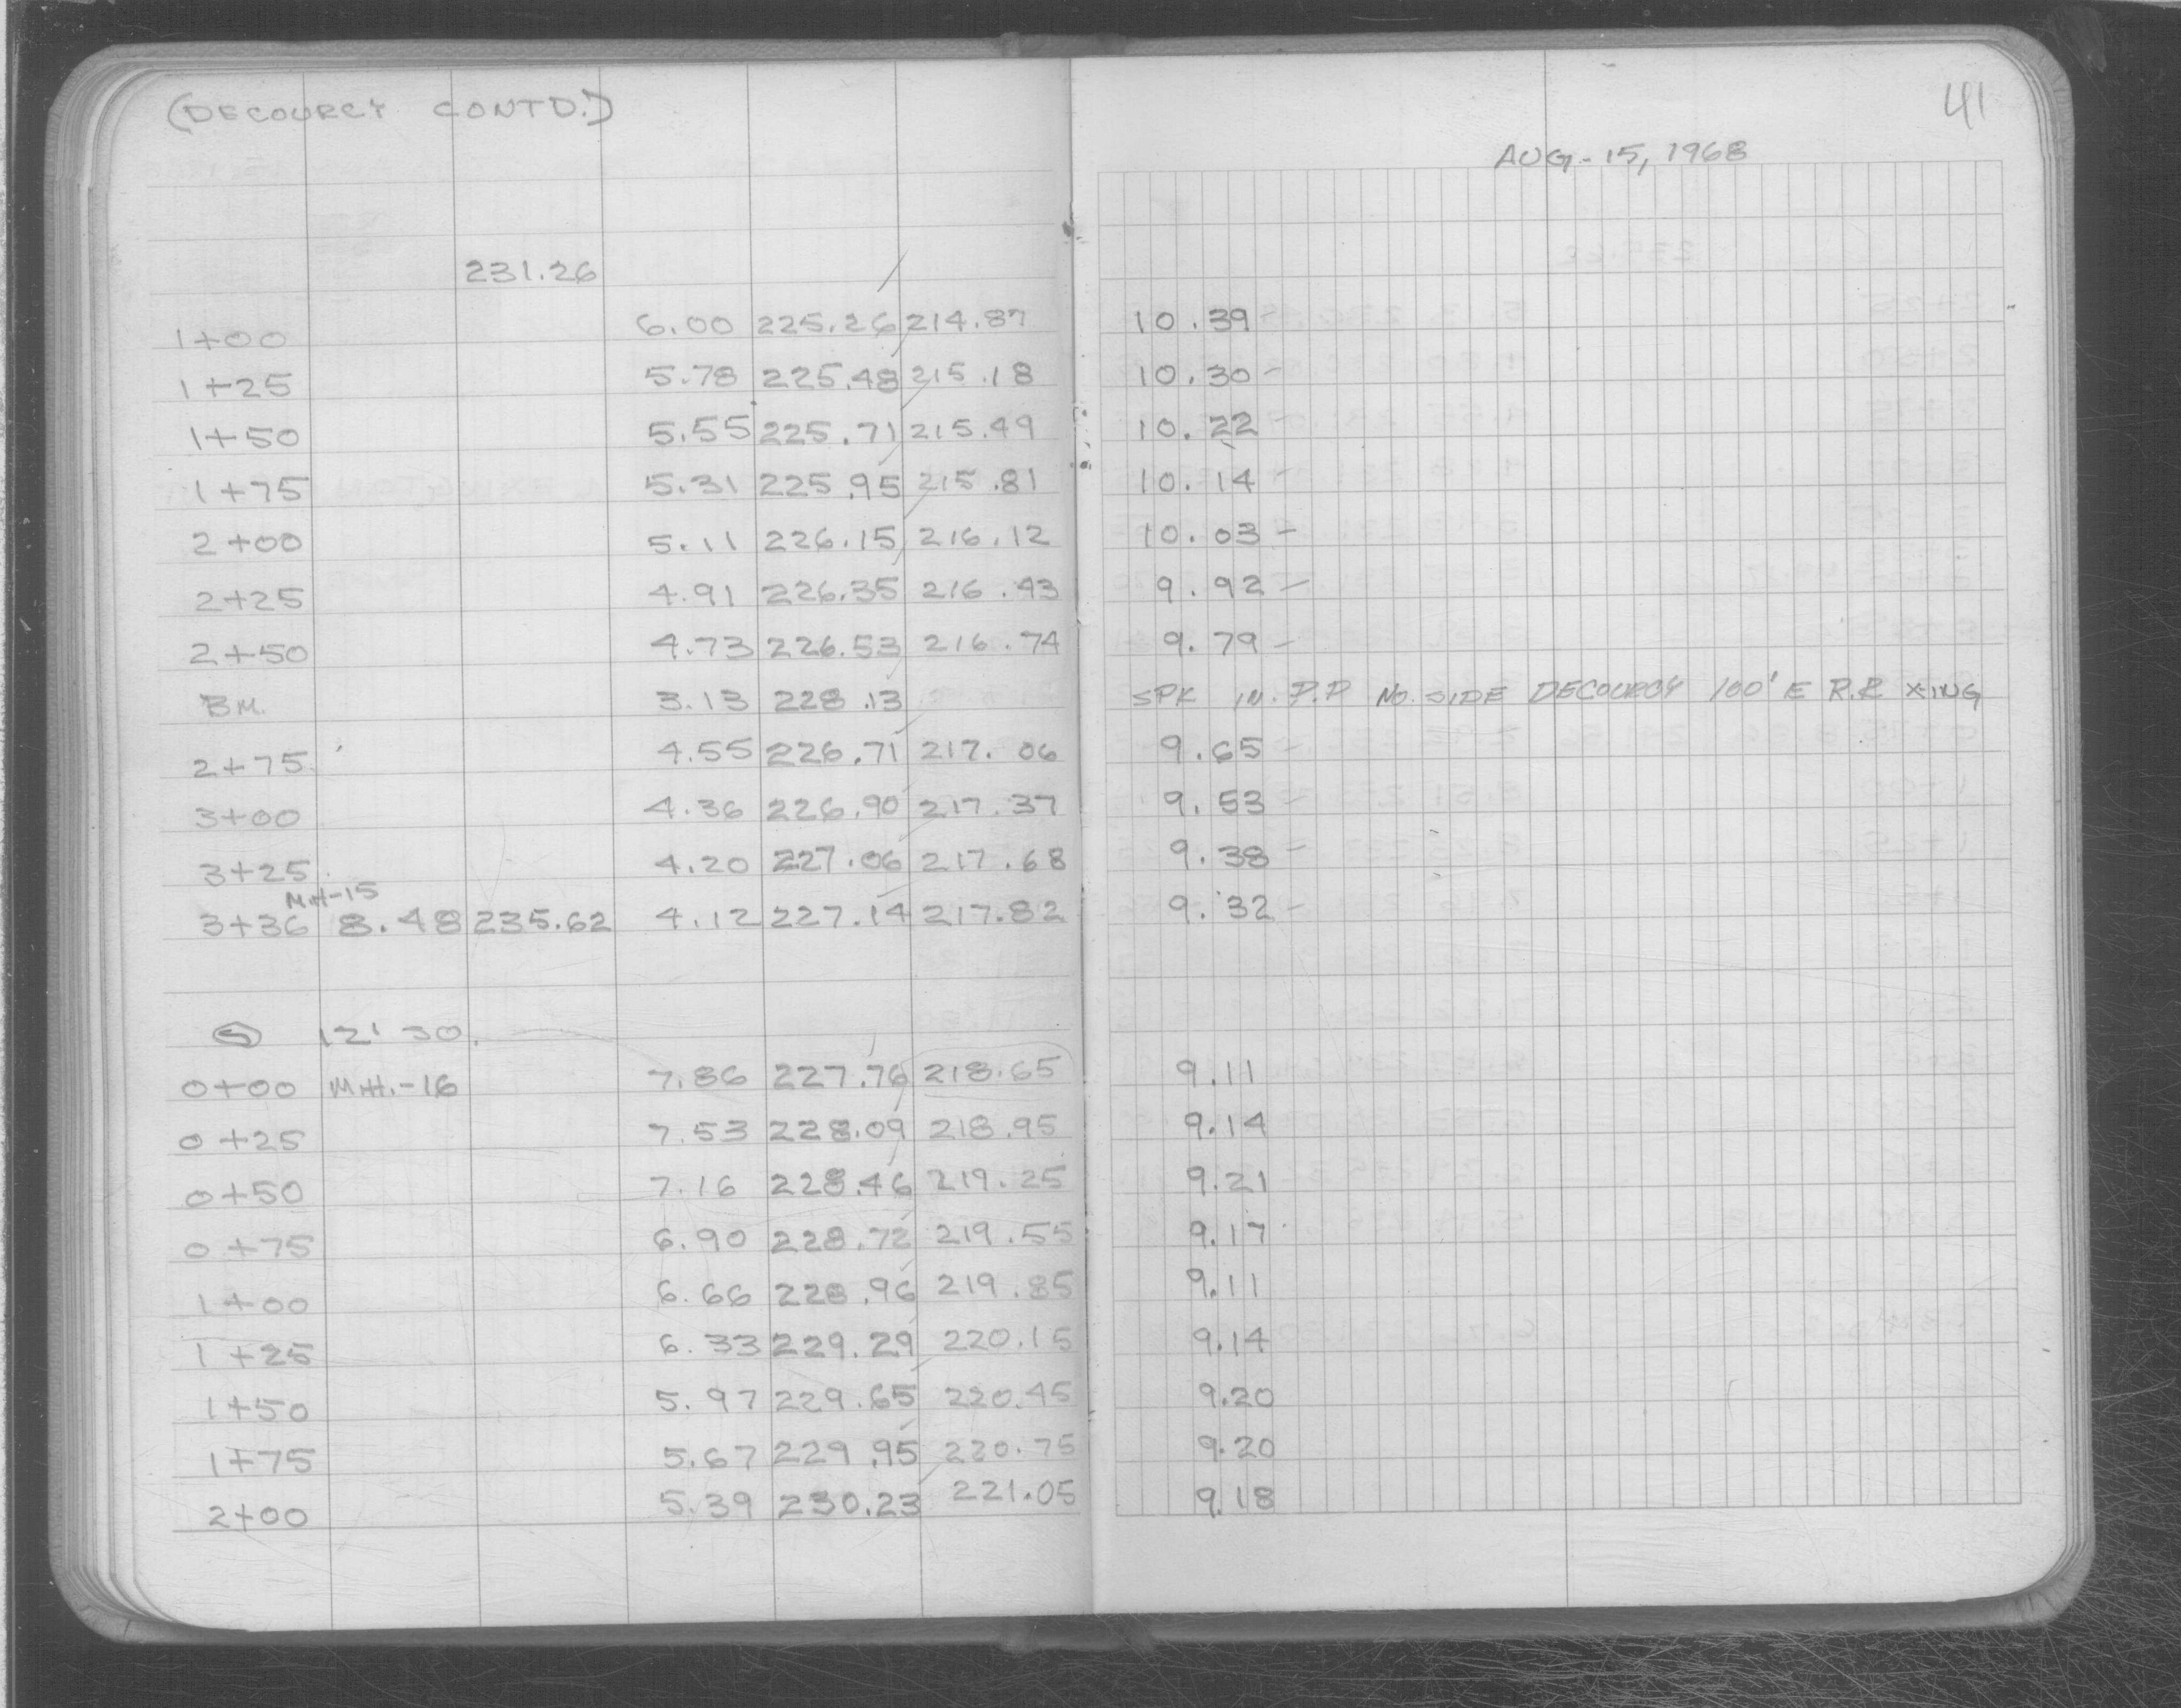 (DECOURCY CONTD.)
41
AUG-15, 1968
231.26
1+00 6.00 225.26 214.87 10.39-
1+25 5.78 225.48 215.18 10.30-
1+50 5.55 225.71 215.49 10.22-
1+75 5.31 225.95 215.81 10.14-
2+00 5.11 226.15 216.12 10.03-
2+25 4.91 226.35 216.43 9.92-
2+50 4.73 226.53 216.74 9.79-
BM. 3.13 228.13 SPK IN. P.P NO. SIDE DECOURCY 100' E R.R X-ING
2+75 4.55 226.71 217.06 9.65-
3+00 4.36 226.90 217.37 9.53-
3+25 4.20 227.06 217.68 9.38-
M.H-15
3+36 8.48 235.62 4.12 227.14 217.82 9.32-
12' 30.
0+00 M.H.-16 7.86 227.76 218.65 9.11
0+25 7.53 228.09 218.95 9.14
0+50 7.16 228.46 219.25 9.21
0+75 6.90 228.72 219.55 9.17
1+00 6.66 228.96 219.85 9.11
1+25 6.33 229.29 220.15 9.14
1+50 5.97 229.65 220.45 9.20
1+75 5.67 229.95 220.75 9.20
2+00 5.39 230.23 221.05 9.18